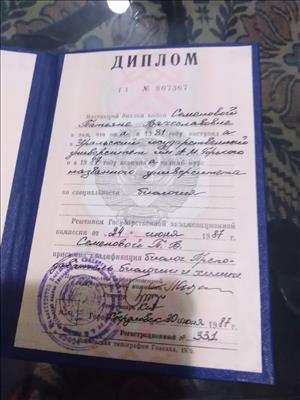 ДИПЛОМ
№ 807367
Настоящий диплом выдан Семеновой
Татьяне Вячеславовне
в том, что он а в 1981 году поступил а
в Уральский государственный
университет им. А.М. Горького
и в 1987 году окончил а полный курс
названного университета
по специальности биология
Решением Государственной экзаменационной
комиссии от "24" июня 1987 г.
Семеновой Т.В.
присвоена квалификация Биолог. Препо-
даватель биологии и химии.
Город Свердловск 30 июня 1987 г.
Регистрационный № 331
типография Гознака.